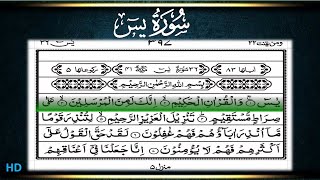 سُورَةُ يٰسٓ
يٰسٓ ٣٦
٣٩٧
ومن يقنت ٢٢
اٰياتها ٨٣
سورة يٰسٓ
رُكوعاتها ٥
بِسْمِ اللّٰهِ الرَّحْمٰنِ الرَّحِيْمِ
يٰسٓ ۚ وَالْقُرْاٰنِ الْحَكِيْمِ ۙ اِنَّكَ لَمِنَ الْمُرْسَلِيْنَ ۙ عَلٰى
صِرَاطٍ مُّسْتَقِيْمٍ ؕ تَنْزِيْلَ الْعَزِيْزِ الرَّحِيْمِ ۙ لِتُنْذِرَ قَوْمًا
مَّاۤ اُنْذِرَ اٰبَآؤُهُمْ فَهُمْ غٰفِلُوْنَ لَقَدْ حَقَّ الْقَوْلُ عَلٰۤى
اَكْثَرِهِمْ فَهُمْ لَا يُؤْمِنُوْنَ اِنَّا جَعَلْنَا فِيْۤ اَعْنَاقِهِمْ
منزل ٥
HD